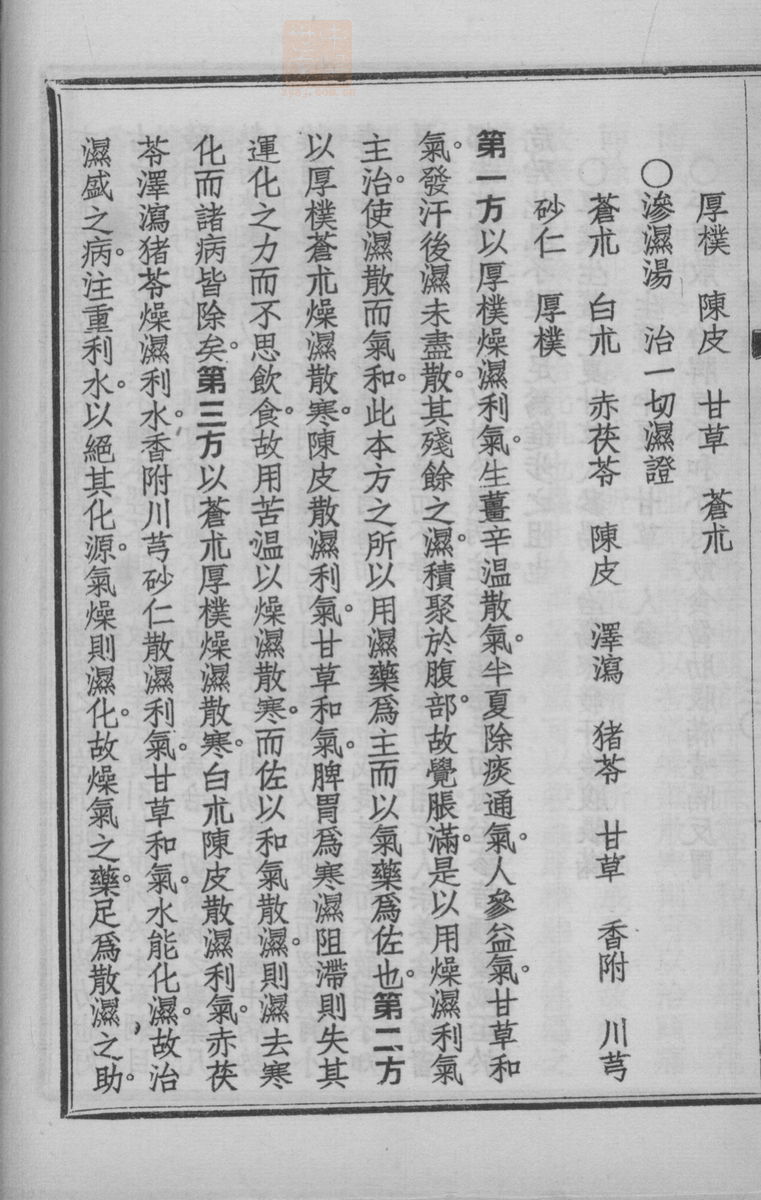 厚樸　陳皮　甘草　蒼朮
〇滲濕湯　治一切濕證
蒼朮　白朮　赤茯苓　陳皮　澤瀉　猪苓　甘草　香附　川芎
砂仁　厚樸
第一方以厚樸燥濕利氣。生薑辛温散氣。半夏除痰通氣。人參益氣。甘草和
氣。發汗後濕未盡散。其殘餘之濕。積聚於腹部。故覺脹滿。是以用燥濕利氣
主治。使濕散而氣和。此本方之所以用濕藥爲主而以氣藥爲佐也。第二方
以厚樸蒼朮燥濕散寒。陳皮散濕利氣。甘草和氣。脾胃爲寒濕阻滯則失其
運化之力而不思飲食。故用苦温以燥濕散寒。而佐以和氣散濕。則濕去寒
化而諸病皆除矣。第三方以蒼朮厚樸燥濕散寒。白朮陳皮散濕利氣。赤茯
苓澤瀉猪苓燥濕利水。香附川芎砂仁散濕利氣。甘草和氣。水能化濕。故治
濕盛之病。注重利水。以絕其化源。氣燥則濕化。故燥氣之藥。足爲散濕之助。